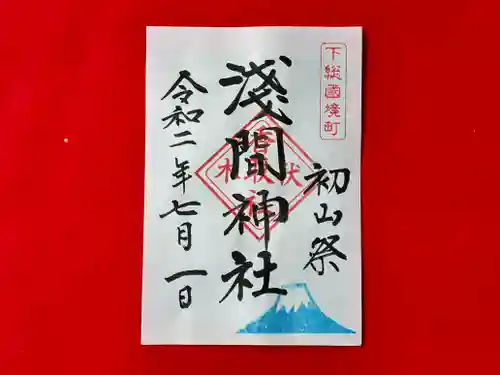 下総國境町
初山祭
淺間神社
令和二年七月一日